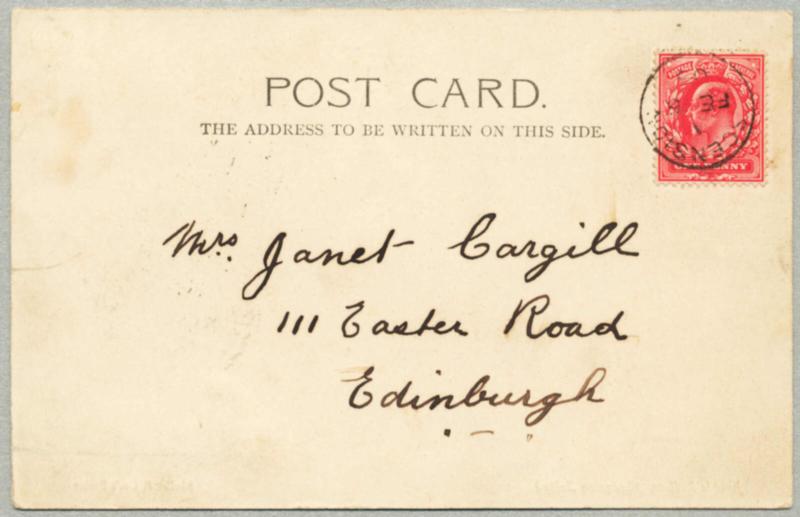 POST CARD.
THE ADDRESS TO BE WRITTEN ON THIS SIDE.
Mrs. Janet Cargill
111 Easter Road
Edinburgh
POSTAGE
FE